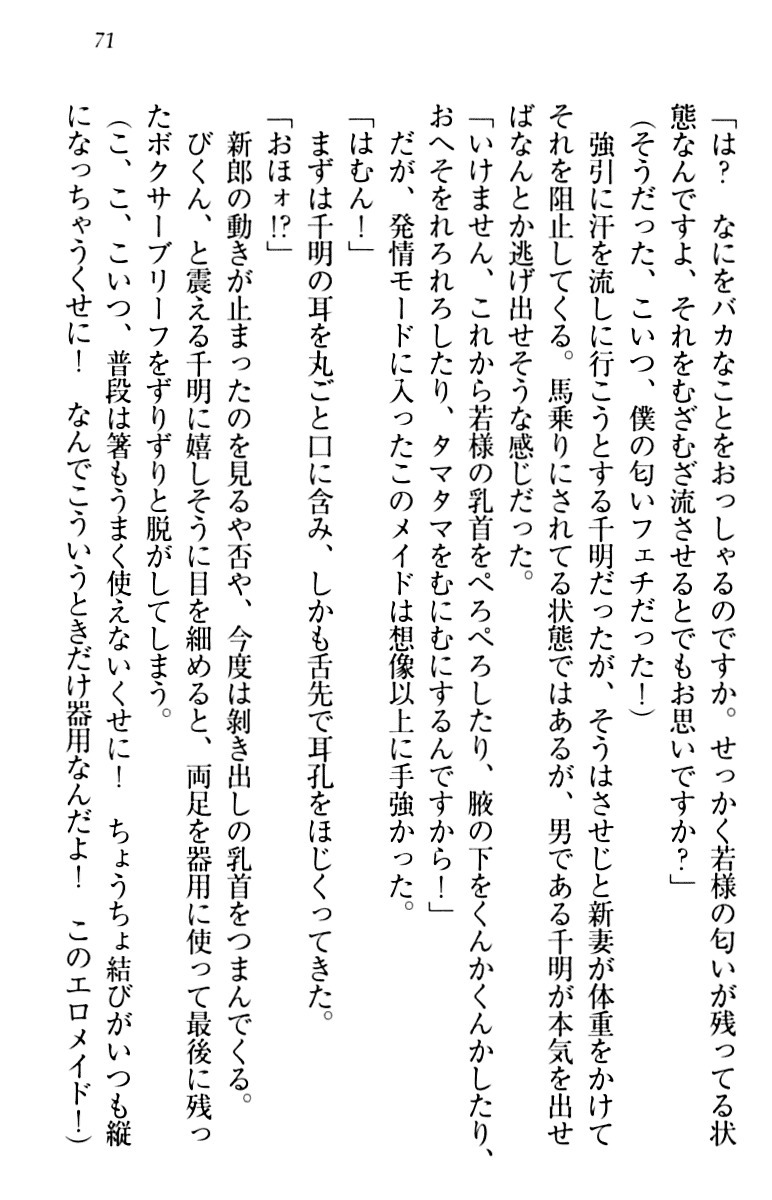 71
「は？　なにをバカなことをおっしゃるのですか。せっかく若様の匂いが残ってる状
態なんですよ、それをむざむざ流させるとでもお思いですか？」
（そうだった、こいつ、僕の匂いフェチだった！）
　強引に汗を流しに行こうとする千明だったが、そうはさせじと新妻が体重をかけて
それを阻止してくる。馬乗りにされてる状態ではあるが、男である千明が本気を出せ
ばなんとか逃げ出せそうな感じだった。
「いけません、これから若様の乳首をぺろぺろしたり、腋の下をくんかくんかしたり、
おへそをれろれろしたり、タマタマをむにむにするんですから！」
　だが、発情モードに入ったこのメイドは想像以上に手強かった。
「はむん！」
　まずは千明の耳を丸ごと口に含み、しかも舌先で耳孔をほじくってきた。
「おほォ!?」
　新郎の動きが止まったのを見るや否や、今度は剝き出しの乳首をつまんでくる。
　びくん、と震える千明に嬉しそうに目を細めると、両足を器用に使って最後に残っ
たボクサーブリーフをずりずりと脱がしてしまう。
（こ、こ、こいつ、普段は箸もうまく使えないくせに！　ちょうちょ結びがいつも縦
になっちゃうくせに！　なんでこういうときだけ器用なんだよ！　このエロメイド！）